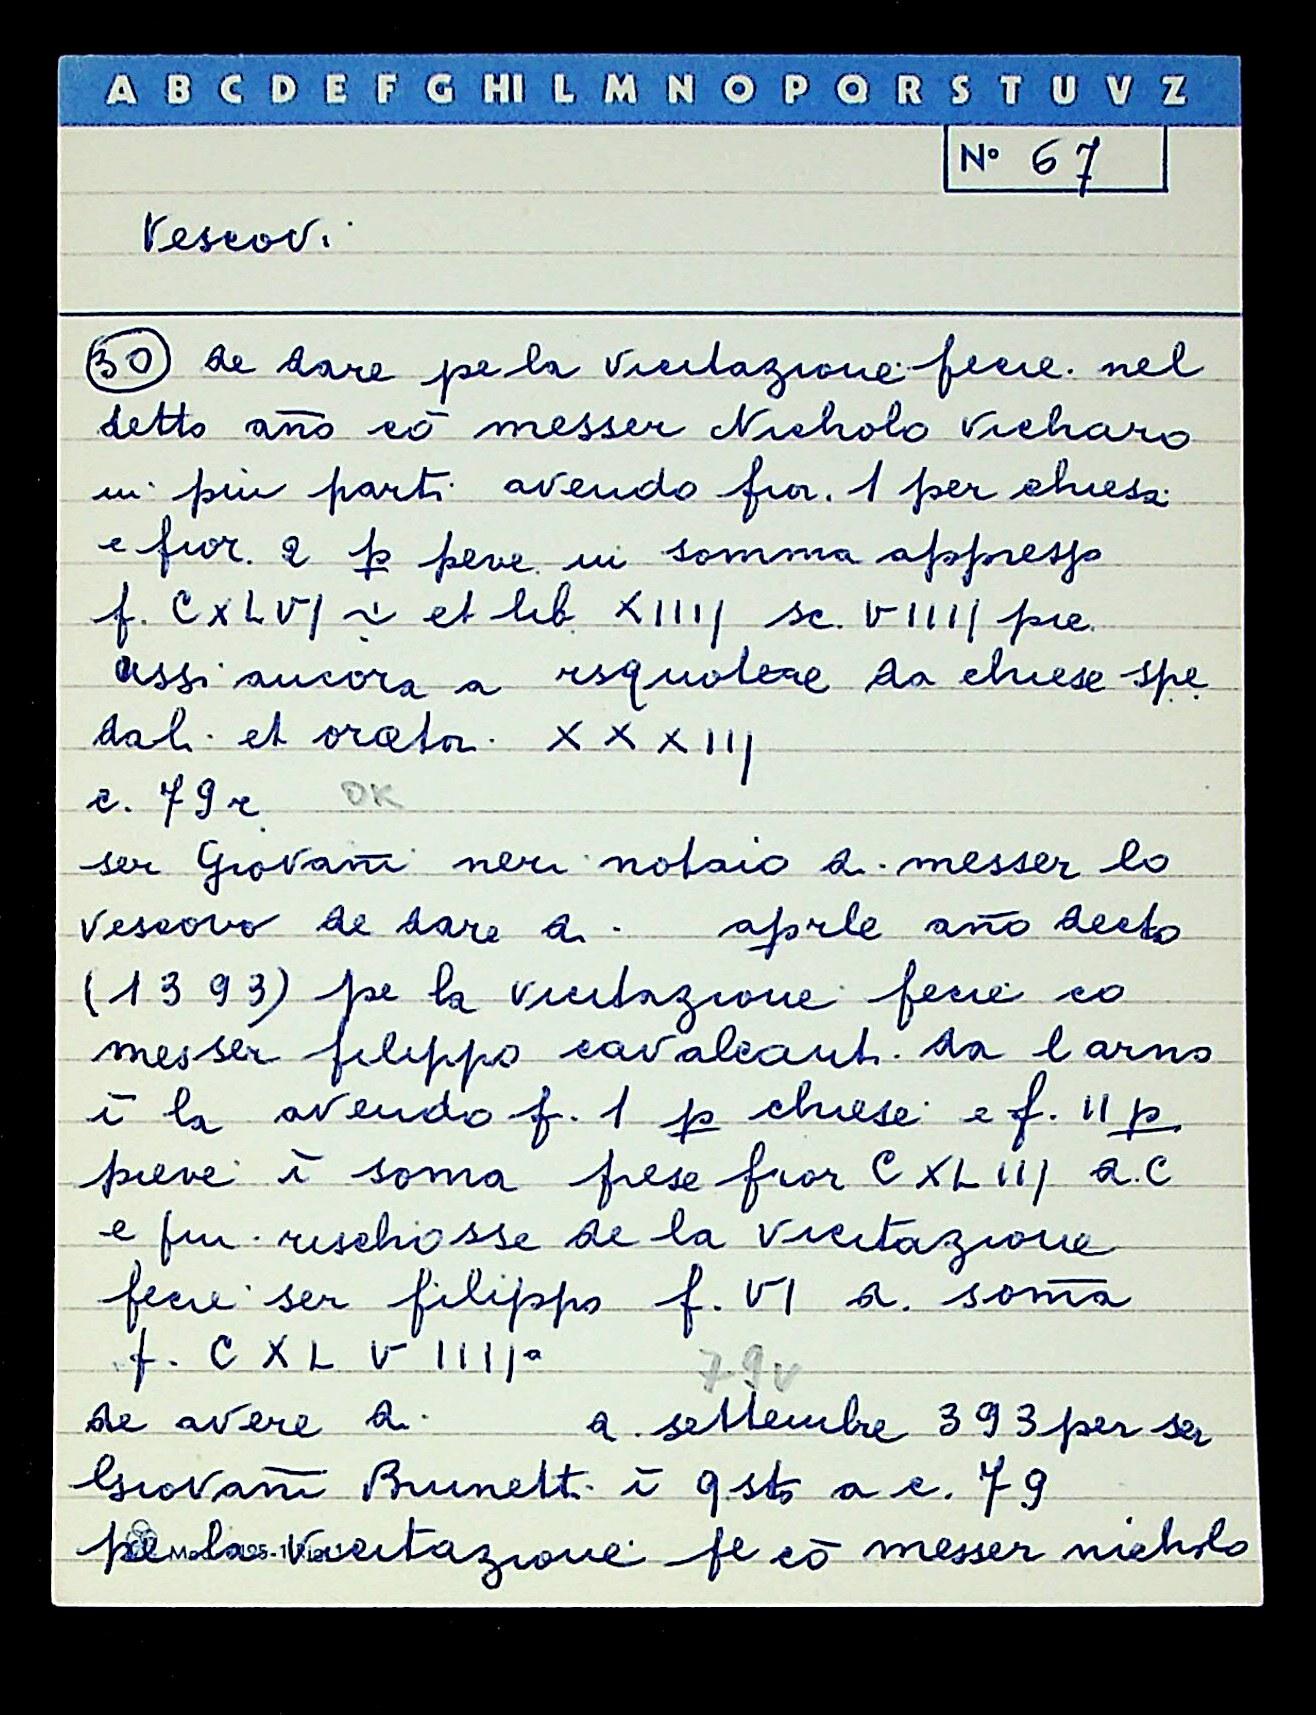 A B C D E F G HI L M N O P Q R S T U V Z
N° 67
Vescovi
30 de dare pe la vicitazione fecie nel
detto año cō messer Nicholo vicharo
in più parti avendo fior. 1 per chiesa
e fior. 2 p peve in somma appresso
f. CXLVI et lib XIIII sc. VIIII pic.
assi ancora a rsquotere da chiese spe
dali et orator XXXIII
c. 79r OK
ser Giovañi neri notaio di messer lo
vescovo de dare di aprle año decto
(1393) pe la vicitazione fecie co
messer filippo cavalcanti da l arno
ī la avendo f. 1 p chiese e f. II p
pieve ī soma prese fior CXLIII d.C
e fui rischosse de la vicitazione
fecie ser filippo f. VI d. som̄a
f. CXLVIIII
79v
de avere di a settembre 393 per ser
Giovañi Brunetti ī q.sto a c. 79
pe la vicitazione fe cō messer nicholo